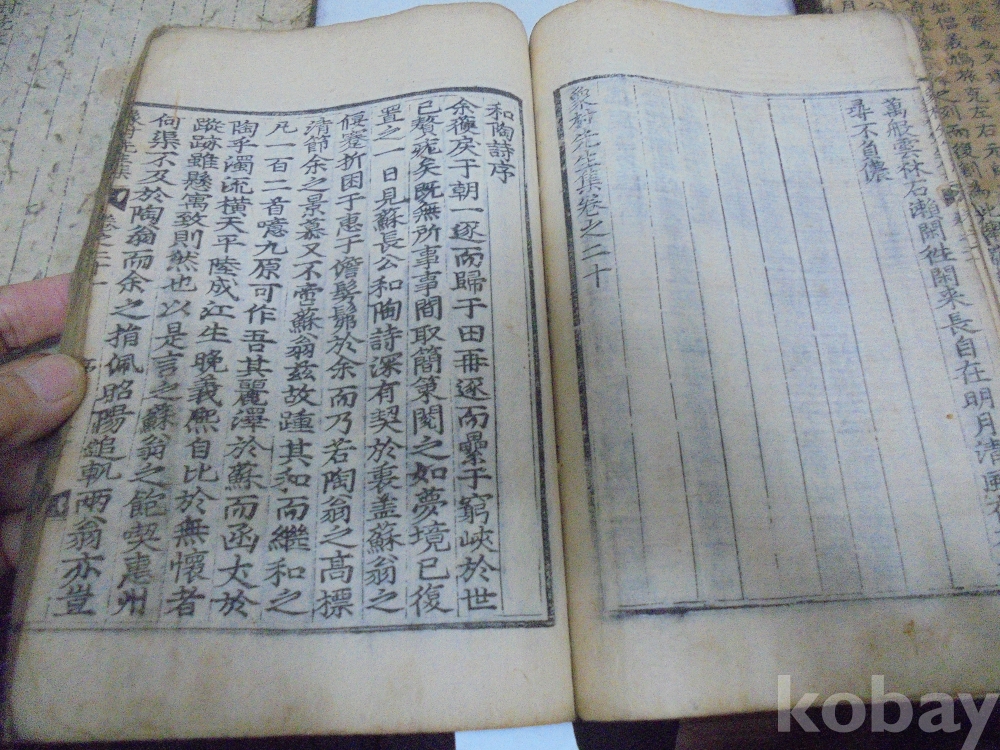 萬般雲林石瀨閑往閑來長自在明月清風
尋不負儂
象村先生集卷之二十
和陶詩序
余獲戾于朝一逐而歸于田再逐而纍于窮峽於世
已贅疣矣既無所事事間取簡策閱之如夢境已復
置之一日見蘇長公和陶詩深有契於衷盖蘇翁之
偃蹇折困于惠于儋髣髴於余而乃若陶翁之高標
清節余之景慕又不啻蘇翁玆故踵其和而繼和之
凡一百二首噫九原可作吾其麗澤於蘇而函丈於
陶乎濁流橫天平陸成江生晚義熙自比於無懷者
蹤跡雖懸寓致則然也以是言之蘇翁之飽喫惠州
何渠不及於陶翁而余之捐佩昭陽追軌兩翁亦豈
kobay